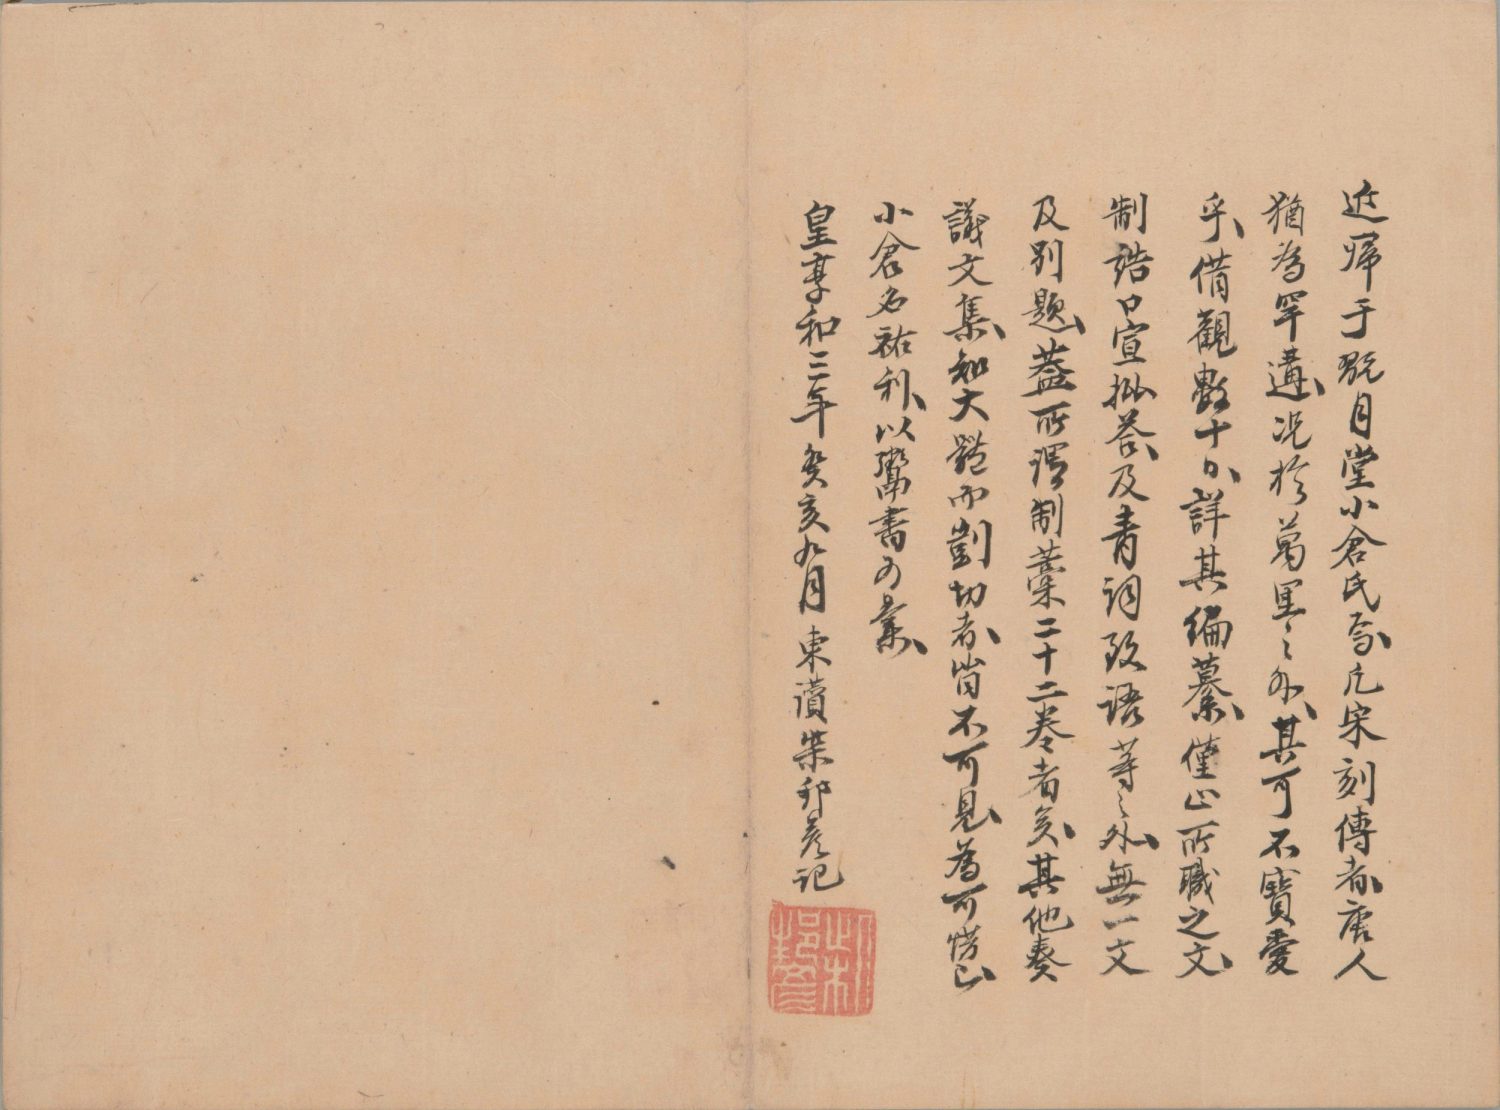 近帰于翫月堂小倉氏矣凢宋刻傳者唐人
猶為罕遘况於萬里之外其可不寶愛
乎借觀數十日詳其編纂僅止所職之文
制誥口宣批荅及青詞致語等之外無一文
及別題蓋所謂制藁二十二卷者矣其他奏
議文集知大體而剴切者皆不可見為可愕已
小倉名祐利以鬻書為業
皇享和三年癸亥九月東瀆柴邦彦記
柴邦彦